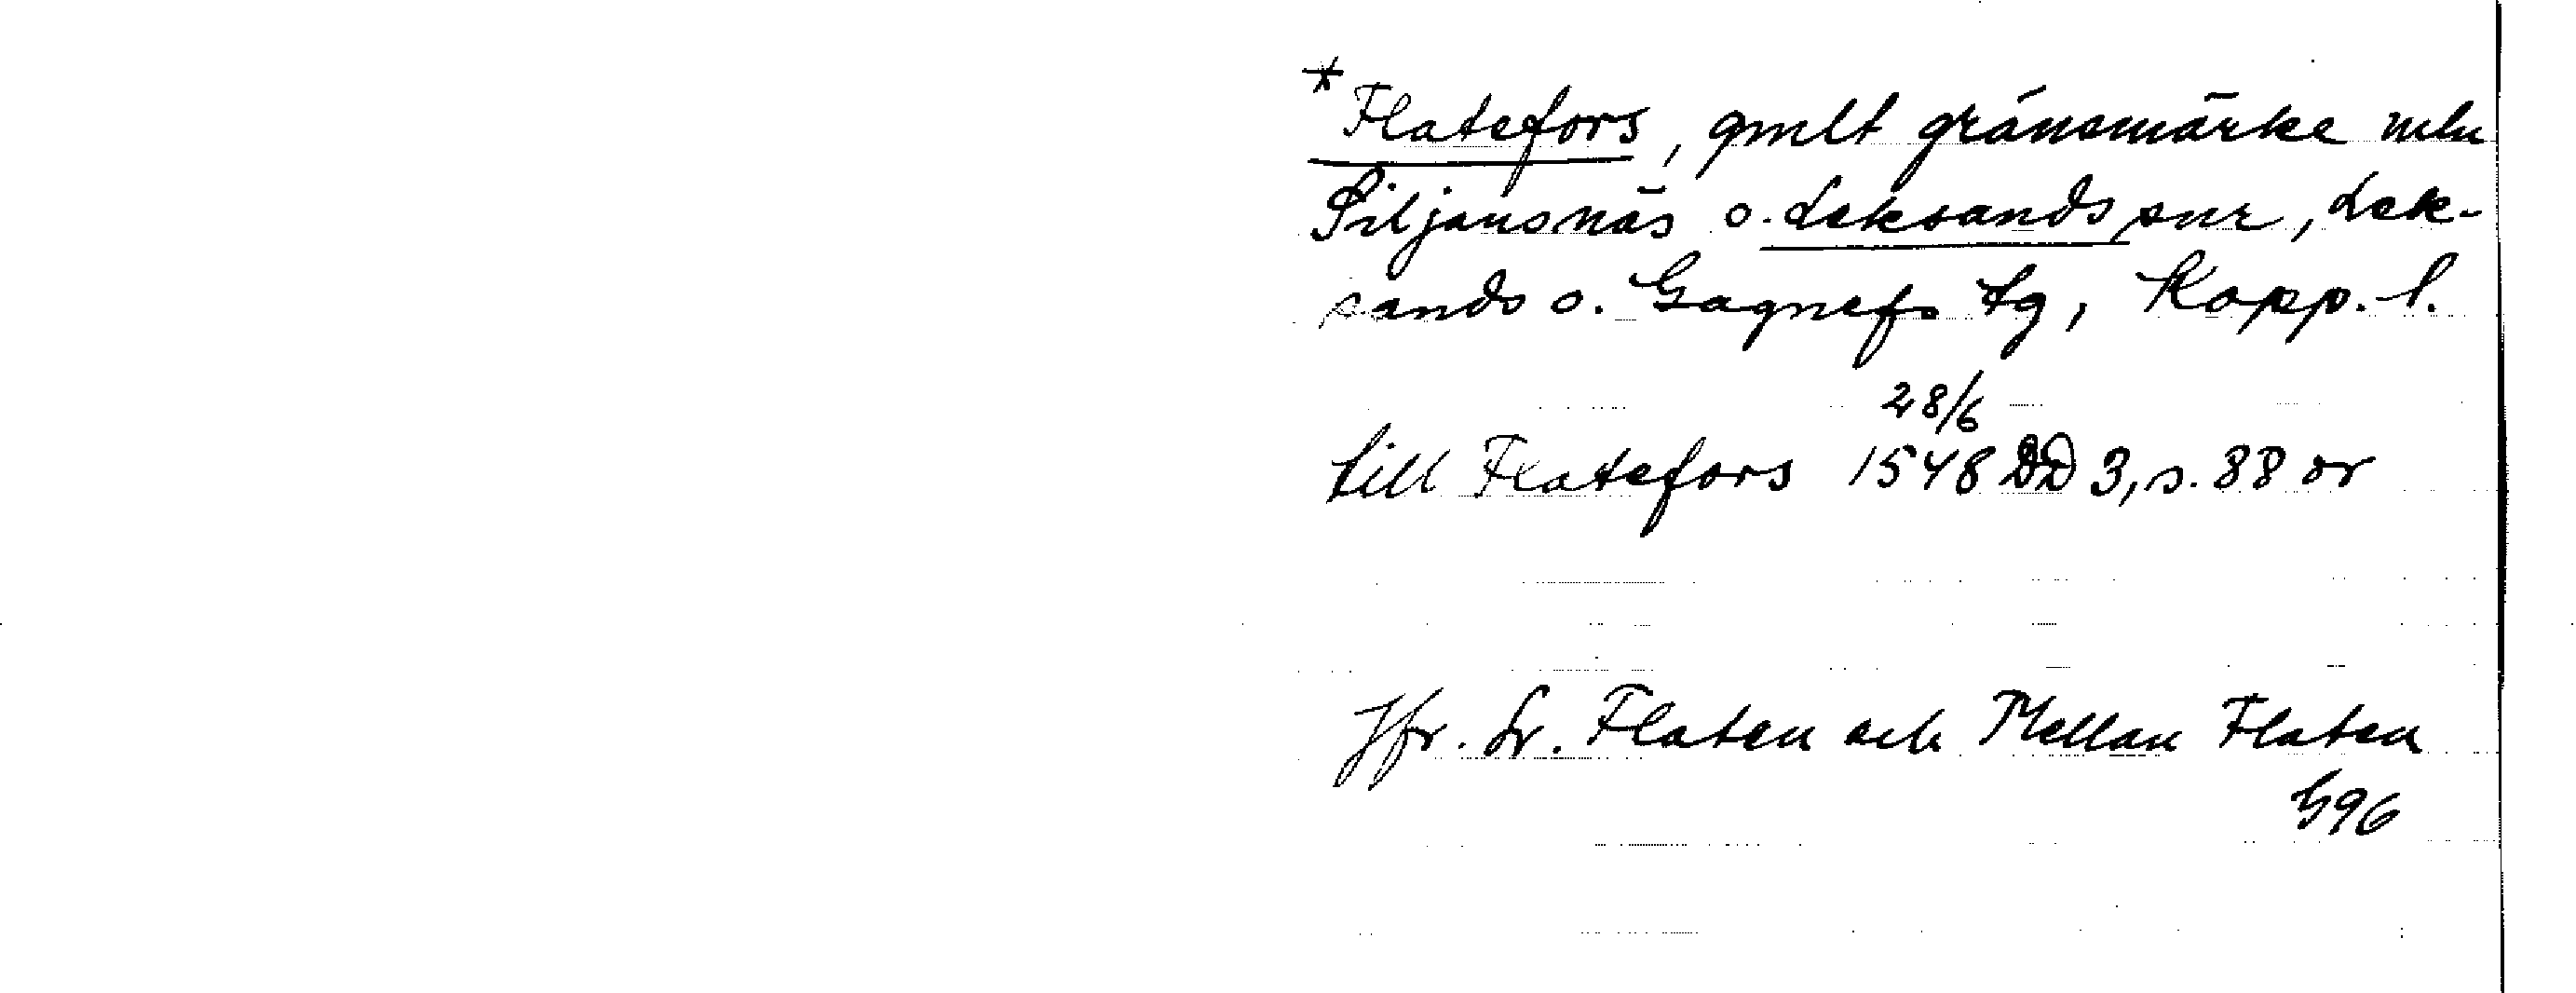 * Flatefors, gmlt gränsmärke mln
Siljansnäs o. Leksands snr, Lek-
sands o. Gagnefs tg, Kopp. l.
28/6
till Flatefors 1548 DD 3, s. 88 or
Jfr. St. Flaten och Mellan Flaten
G96